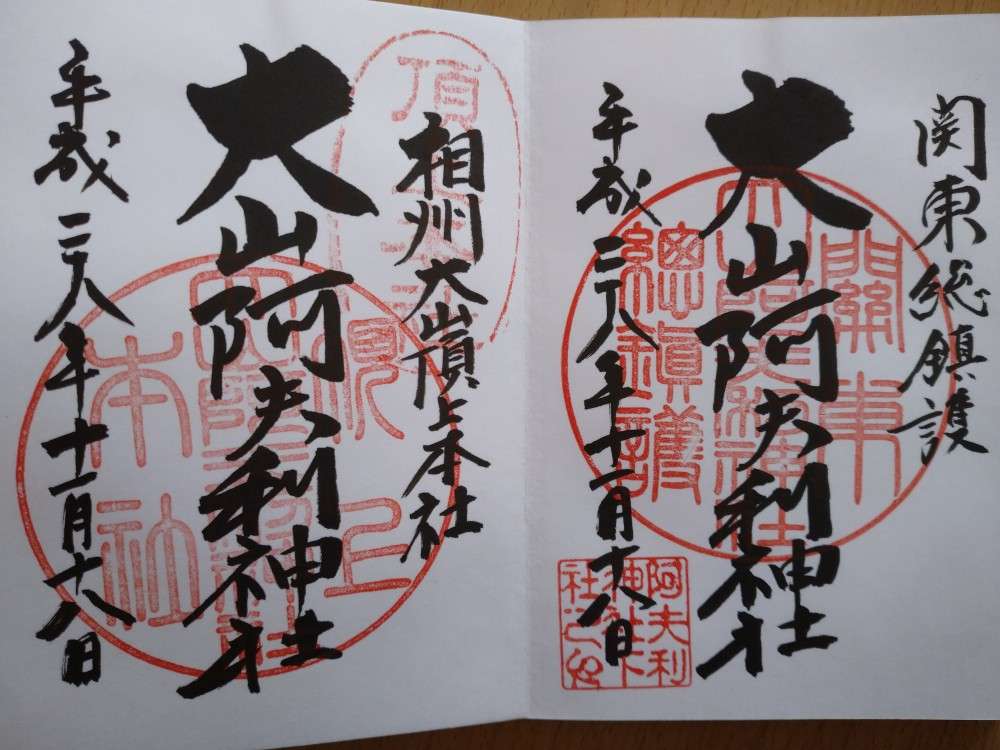 関東総鎮護
大山阿夫利神社
平成二八年十一月十八日
關東
總鎮護
阿夫利
神社下
社之印
相州大山頂上本社
大山阿夫利神社
平成二八年十一月十八日
頂上
本社